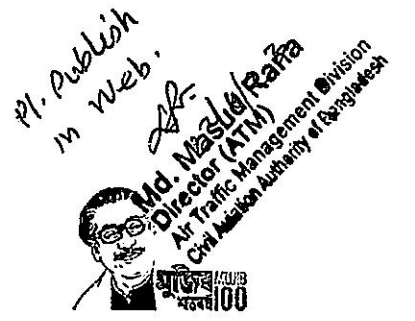 Pl. Publish
in Web.
Md. Masud Rana
Director (ATM)
Air Traffic Management Division
Civil Aviation Authority of Bangladesh
মুজিব MUJIB
শতবর্ষ 100